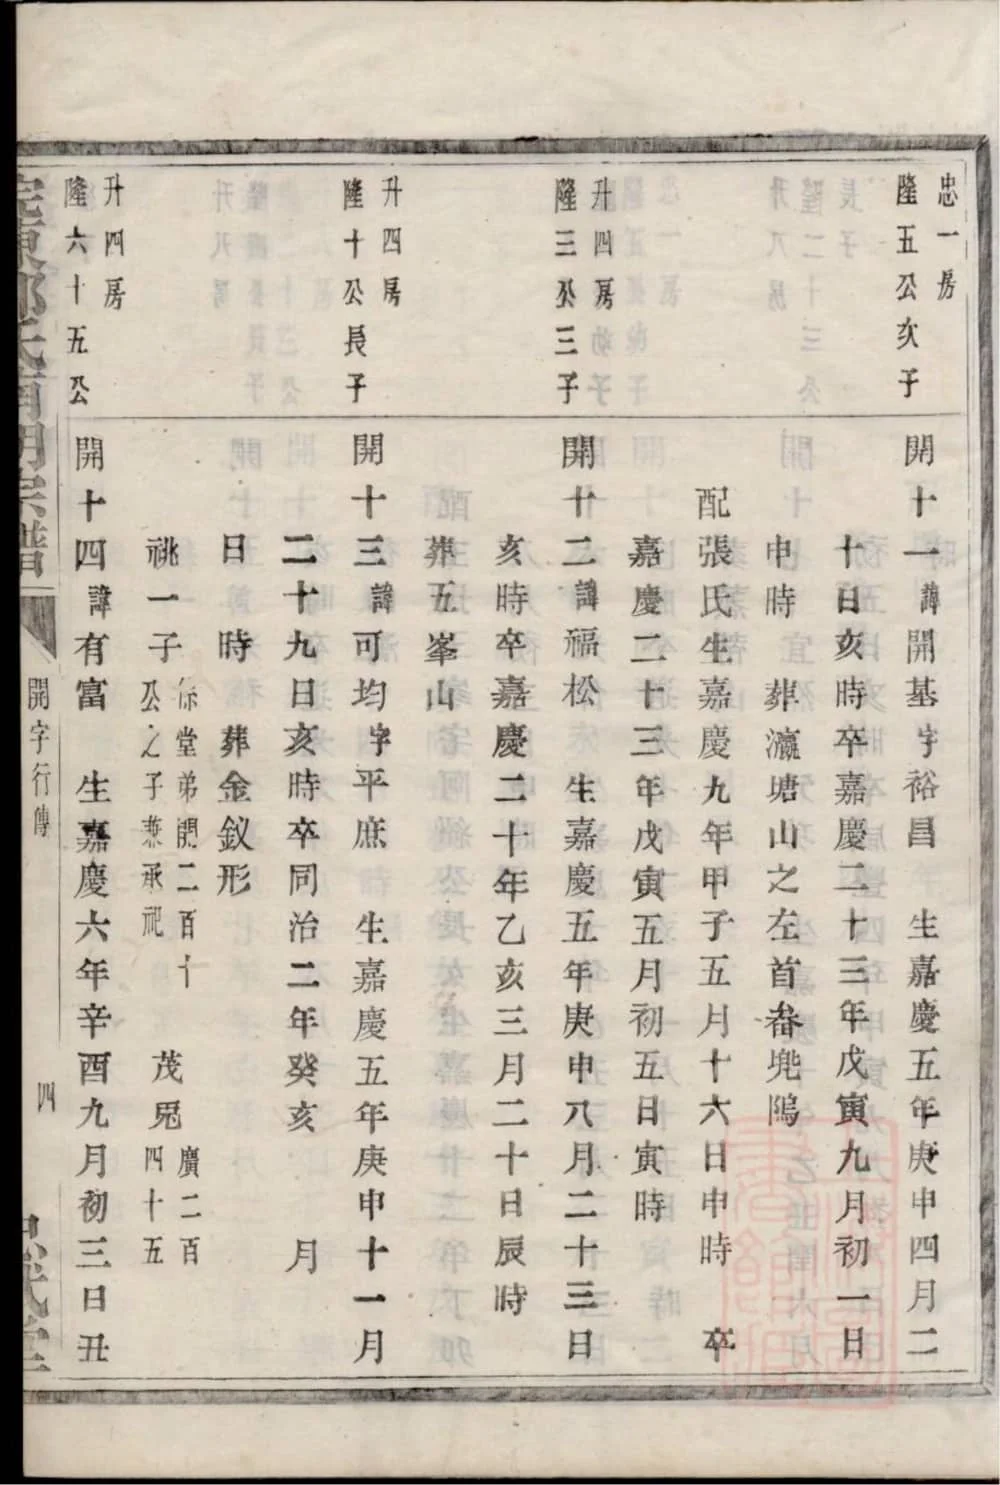 忠一房
隆五公次子
開十一諱開基字裕昌　生嘉慶五年庚申四月二
十日亥時卒嘉慶二十三年戊寅九月初一日
申時　葬瀛塘山之左首番㙮隝
配張氏生嘉慶九年甲子五月十六日申時　卒
嘉慶二十三年戊寅五月初五日寅時
升四房
隆三公三子
開廿二諱福松　生嘉慶五年庚申八月二十三日
亥時卒嘉慶二十年乙亥三月二十日辰時
葬五峯山
升四房
隆十公長子
開十三諱可均字平庶　生嘉慶五年庚申十一月
二十九日亥時卒同治二年癸亥　月
日　時　葬金釵形
祧一子
係堂弟開二百十
公之子兼承祀
茂冕
廣二百
四十五
升四房
隆六十五公
開十四諱有富　生嘉慶六年辛酉九月初三日丑
氏甬明宗譜
開字行傳
四